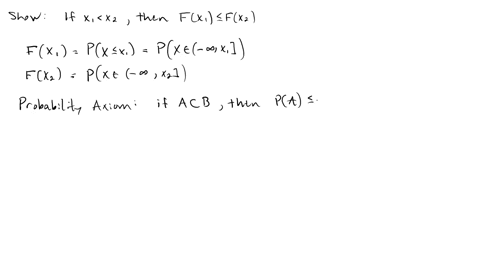 Show: If x₁ < x₂, then F(x₁) ≤ F(x₂)
F(x₁) = P(X ≤ x₁) = P(X ∈ (-∞, x₁])
F(x₂) = P(X ∈ (-∞, x₂])
Probability Axiom: if A ⊂ B, then P(A) ≤